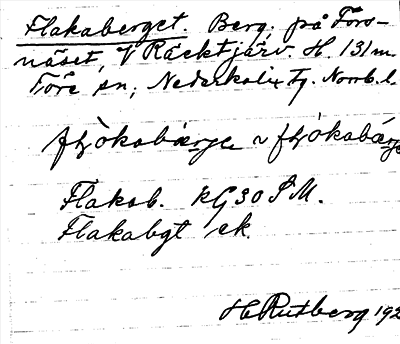 Flakaberget. Berg. på Fors-
näset, V Räcktjärv. H. 131 m.
Töre sn, Nederkalix tg. Norrb. l.
Flakab. KG 30 S M.
Flakabgt ek.
H Rutberg 192